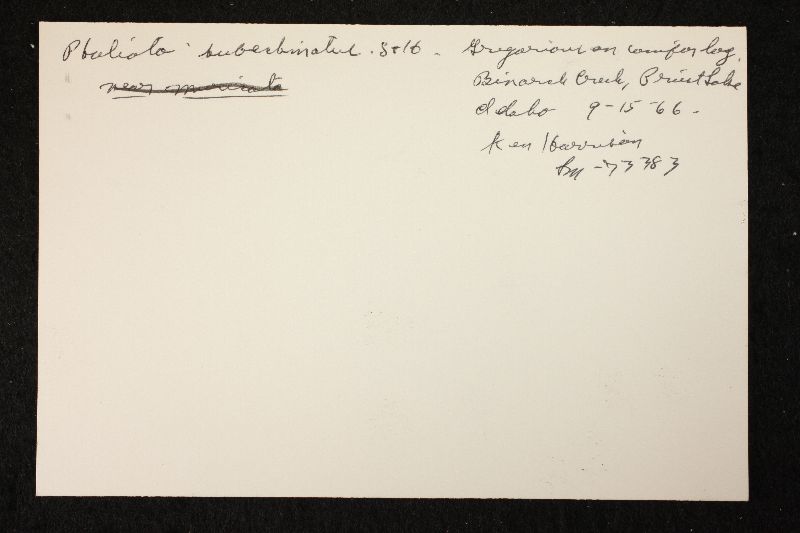 Pholiota subechinatul. S+H. Gregarious on conifer log,
near muricata
Binarch Creek, Priest Lake
Idaho 9-15-66.
Ken Harrison
Sm-73383